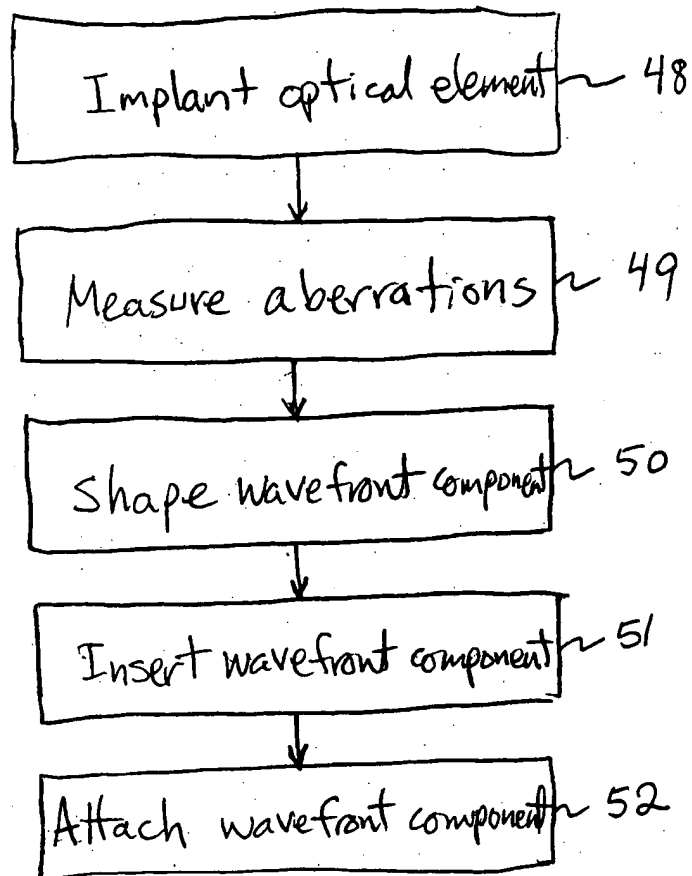 Implant optical element 48
Measure aberrations 49
Shape wavefront component 50
Insert wavefront component 51
Attach wavefront component 52